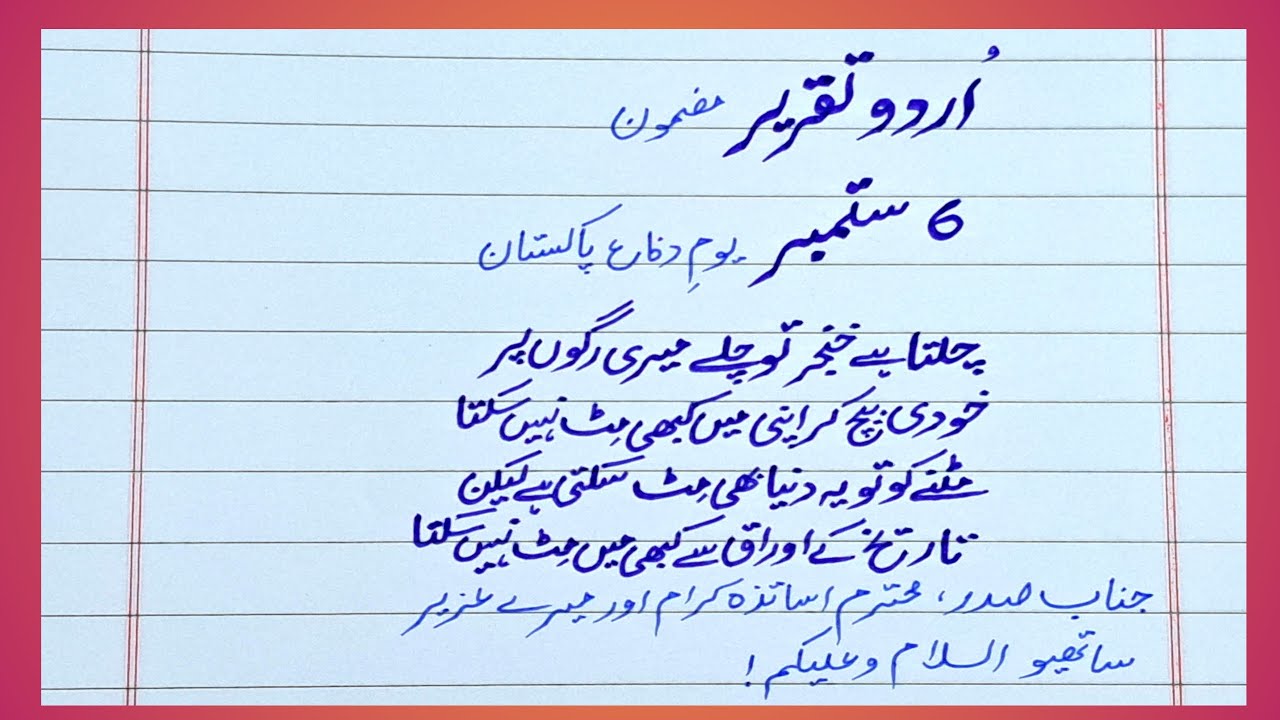 اُردو تقریر مضمون
6 ستمبر یومِ دفاع پاکستان
چلتا ہے خنجر تو چلے میری رگوں پر
خودی بیچ کر اپنی میں کبھی مِٹ نہیں سکتا
مٹنے کو تو یہ دنیا بھی مِٹ سکتی ہے لیکن
تاریخ کے اوراق سے کبھی میں مِٹ نہیں سکتا
جناب صدر، محترم اساتذہ کرام اور میرے عزیز
ساتھیو السلام وعلیکم!